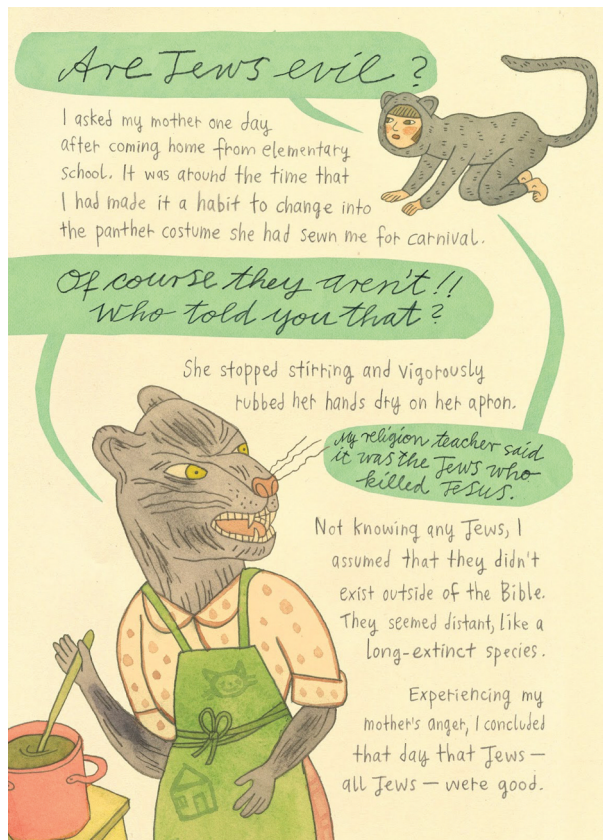 Are Jews evil?
I asked my mother one day
after coming home from elementary
school. It was around the time that
I had made it a habit to change into
the panther costume she had sewn me for carnival.
Of course they aren't!!
Who told you that?
She stopped stirring and vigorously
rubbed her hands dry on her apron.
My religion teacher said
it was the Jews who
killed Jesus.
Not knowing any Jews, I
assumed that they didn't
exist outside of the Bible.
They seemed distant, like a
long-extinct species.
Experiencing my
mother's anger, I concluded
that day that Jews —
all Jews — were good.